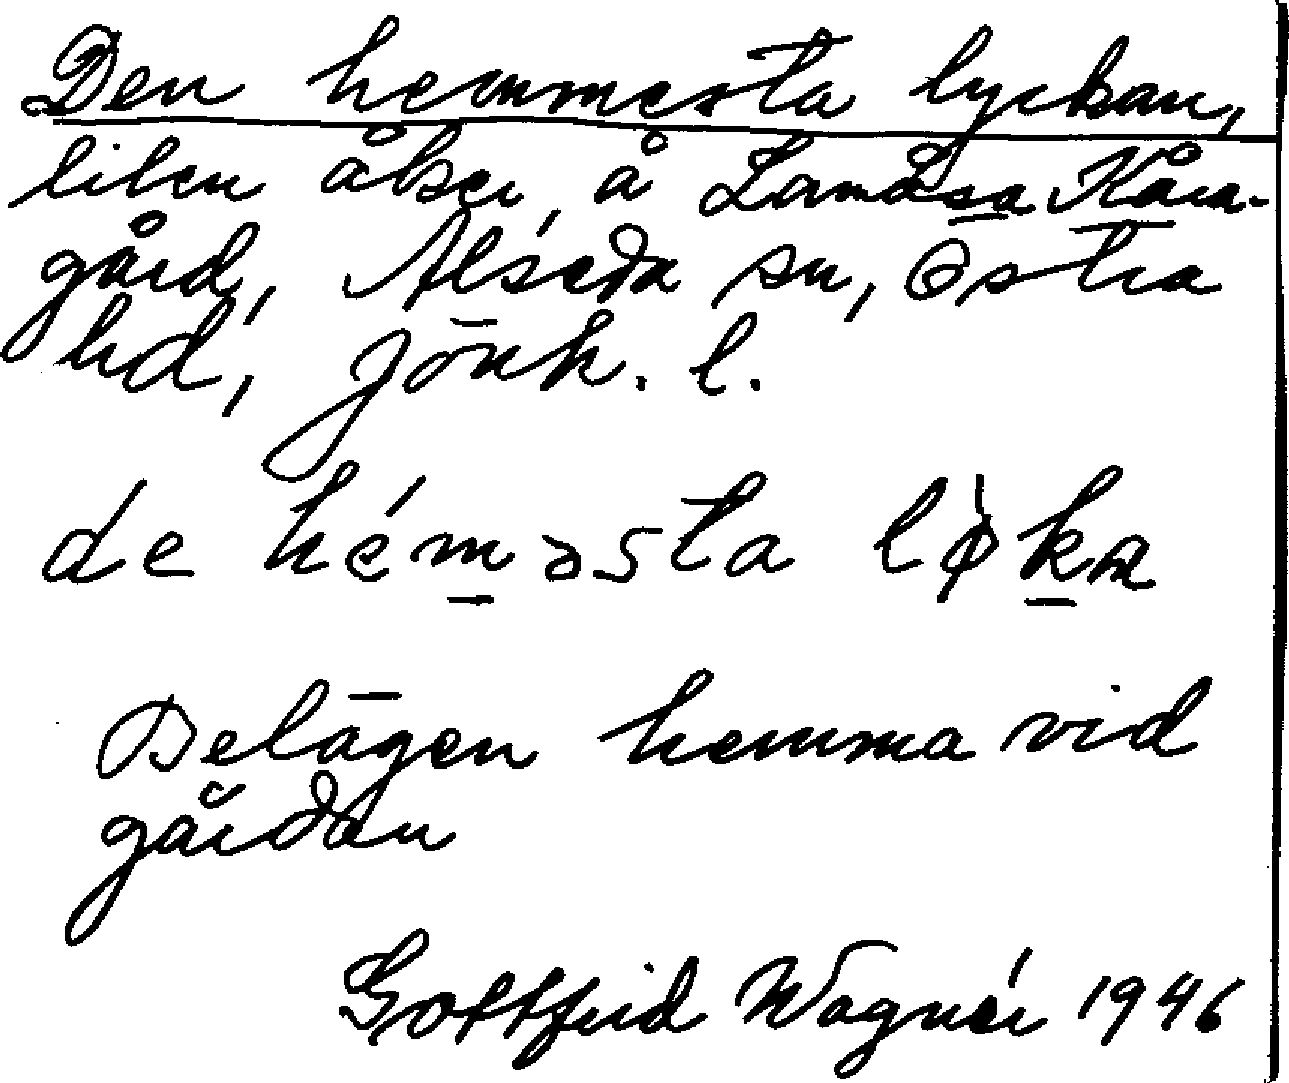 Den hemmesta lyckan,
liten åker å Lamåsa Kåra-
gård, Alseda sn, Östra
hd, Jönk. l.
de hémǝsta lø̀ka
Belägen hemma vid
gården
Gottfrid Wagnér 1946